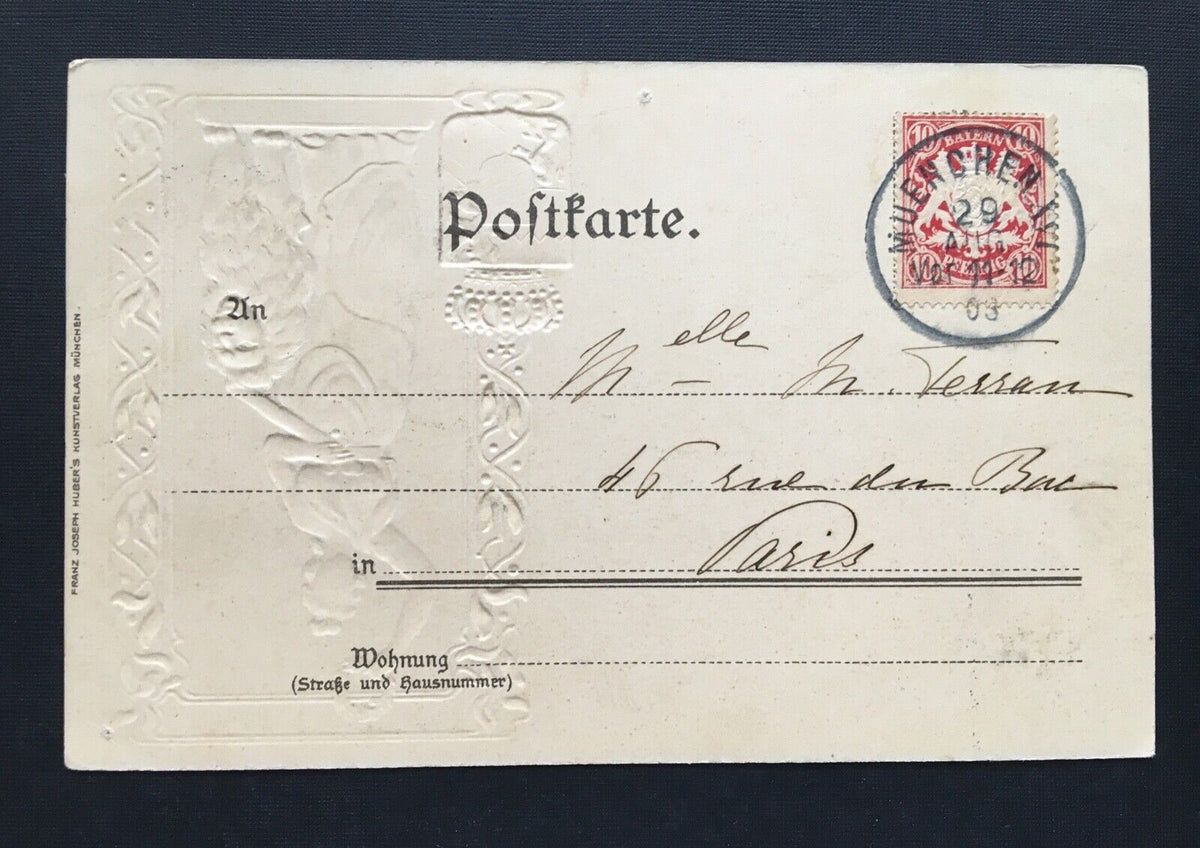 Postkarte.
10 BAYERN 10
10 PFENNIG 10
MUENCHEN XVI
29
AUG
Vor 11-12
03
An
Melle M. Ferran
46 rue du Bac
in Paris
Wohnung
(Straße und Hausnummer)
FRANZ JOSEPH HUBER'S KUNSTVERLAG MÜNCHEN.